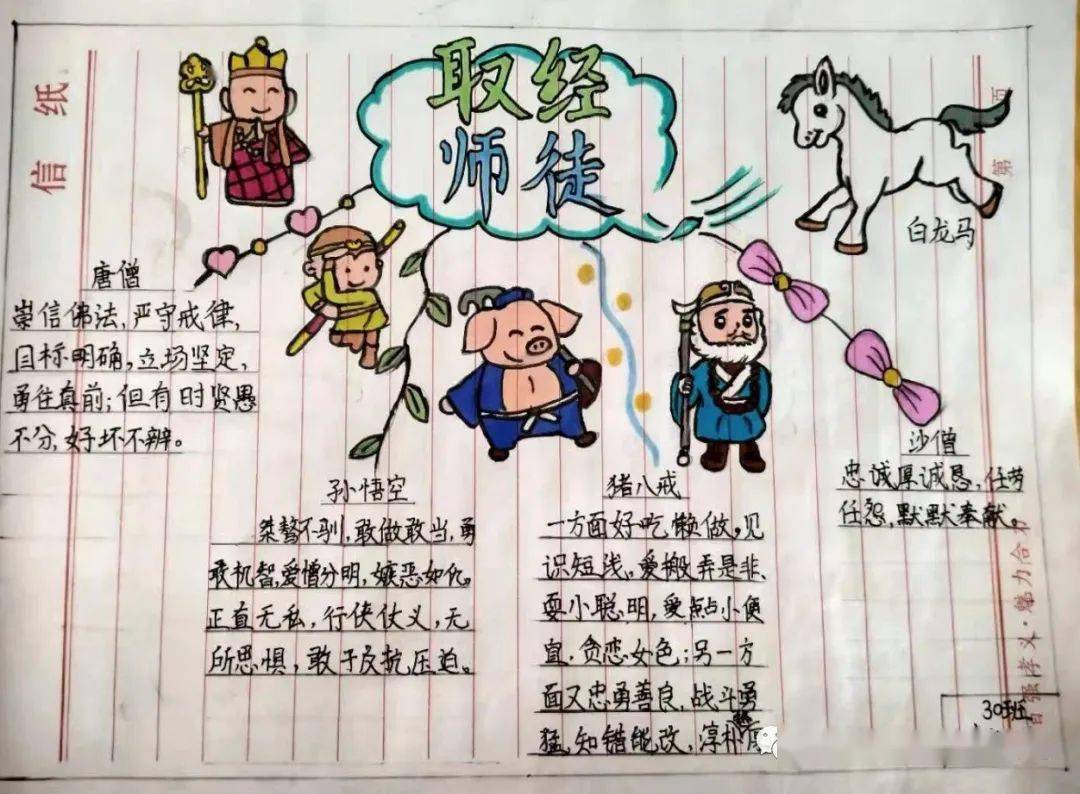 取经
师徒
信纸
第 页
白龙马
唐僧
崇信佛法,严守戒律,
目标明确,立场坚定,
勇往真前;但有时贤愚
不分,好坏不辨。
孙悟空
桀骜不驯,敢做敢当,勇
敢机智,爱憎分明,嫉恶如仇。
正直无私,行侠仗义,无
所思惧,敢于反抗压迫。
猪八戒
一方面好吃懒做,见
识短浅。爱搬弄是非、
耍小聪明,爱占小便
宜.贪恋女色;另一方
面又忠勇善良,战斗勇
猛,知错能改,淳朴厚
沙僧
忠诚厚诚恳,任劳
任怨,默默奉献。
自强孝义·魅力合
30班